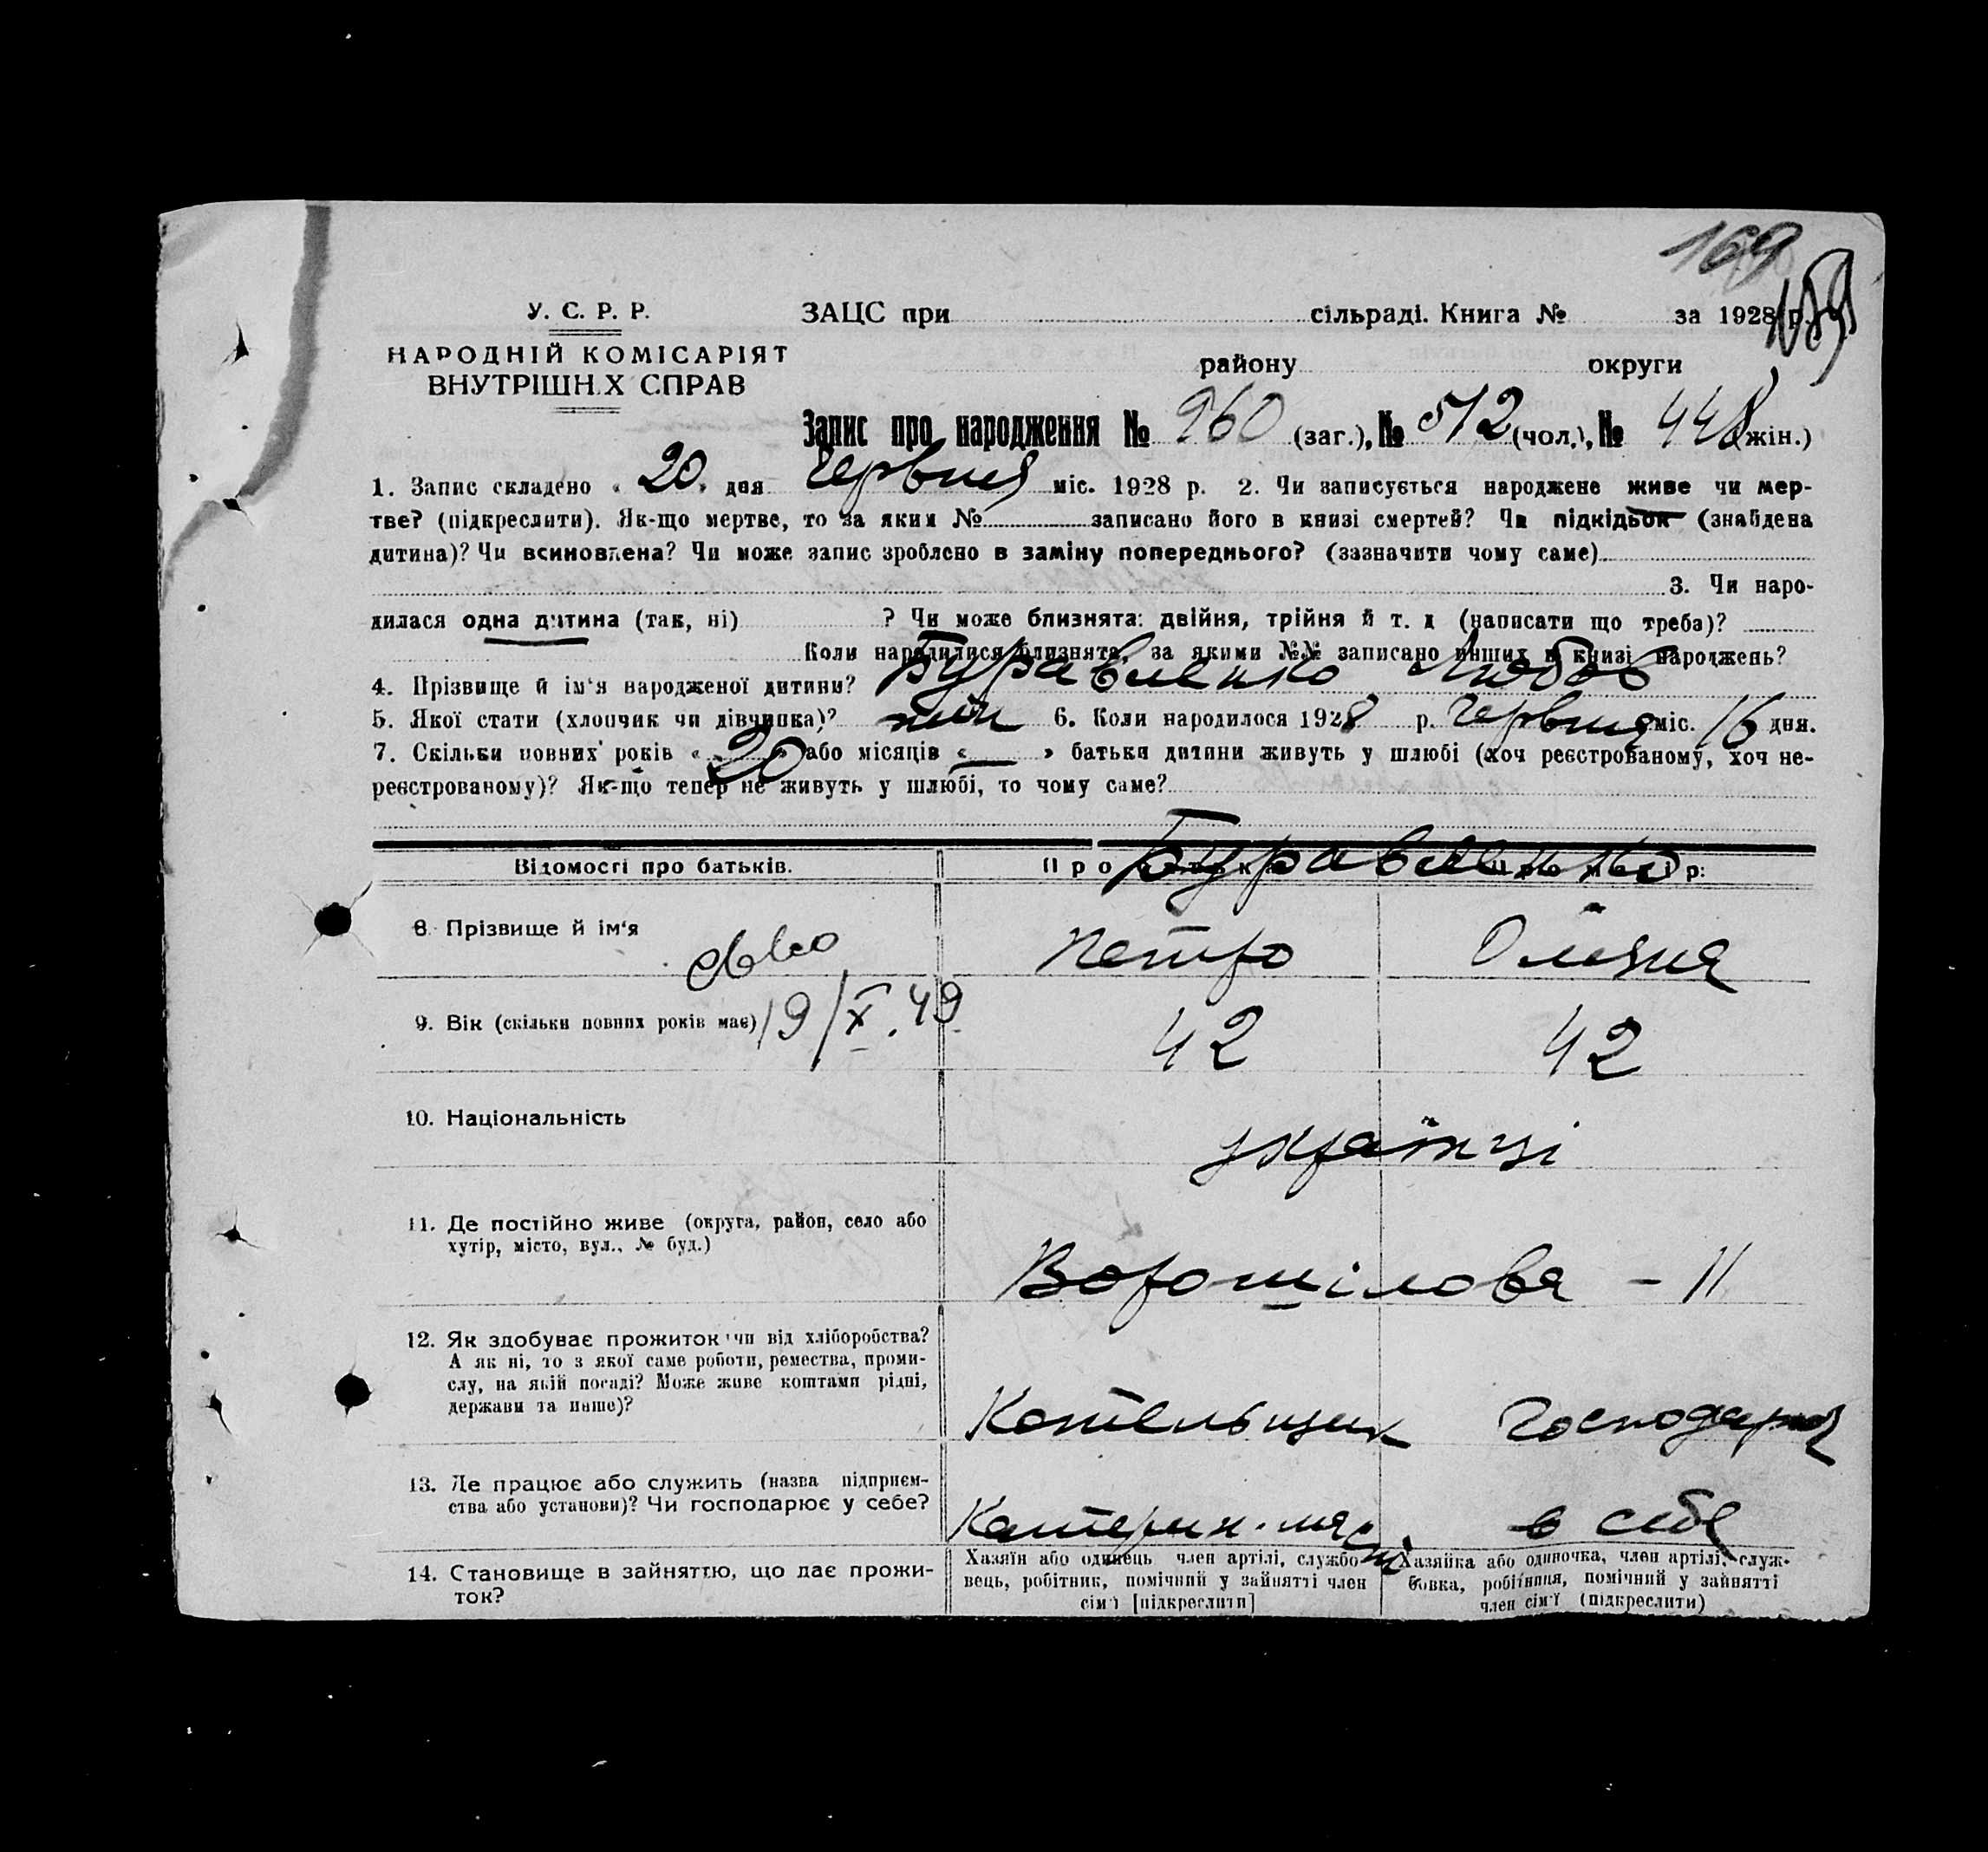 169
169
У. С. Р. Р. ЗАЦС при сільраді. Книга № за 1928 р.
НАРОДНІЙ КОМІСАРІЯТ району округи
ВНУТРІШН.Х СПРАВ
Запис про народження № 960 (заг.), № 512 (чол.), № 448 (жін.)
1. Запис складено « 20 » дня червня міс. 1928 р. 2. Чи записується народжене живе чи мер-
тве? (підкреслити). Як-що мертве, то за яким № записано його в книзі смертей? Чи підкідьок (знайдена
дитина)? Чи всиновлена? Чи може запис зроблено в заміну попереднього? (зазначити чому саме)
3. Чи наро-
дилася одна дитина (так, ні) ? Чи може близнята: двійня, трійня й т. д (написати що треба)?
Коли народилися близнята, за якими №№ записано инших в книзі народжень?
4. Прізвище й ім'я народженої дитини? Буравленко Любов
5. Якої стати (хлопчик чи дівчинка)? жін 6. Коли народилося 1928 р. Червня міс. 16 дня.
7. Скільки повних років « 20 » або місяців « — » батьки дитини живуть у шлюбі (хоч реєстрованому, хоч не-
реєстрованому)? Як-що тепер не живуть у шлюбі, то чому саме?
Відомості про батьків. Про Буравленко р:
8. Прізвище й ім'я Петро Олена
9. Вік (скільки повних років має) 19/X.49 42 42
10. Національність українці
11. Де постійно живе (округа, район, село або
хутір, місто, вул., № буд.)
Ворошілова – 11
12. Як здобуває прожиток чи від хліборобства?
А як ні, то з якої саме роботи, ремества, проми-
слу, на якій посаді? Може живе коштами рідні,
держави та инше)?
Котельщик Господарка
13. Де працює або служить (назва підприєм-
ства або установи)? Чи господарює у себе?
Катерин. в себе
14. Становище в зайняттю, що дає прожи-
ток?
Хазяїн або одинець член артілі, службо-
вець, робітник, помічний у зайнятті член
сім'ї [підкреслити]
Хазяйка або одиночка, член артілі, служ-
бовка, робітниця, помічний у зайнятті
член сім'ї (підкреслити)